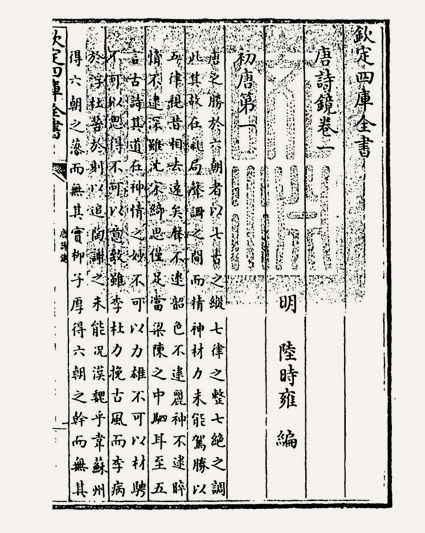 欽定四庫全書
唐詩鏡卷一
明 陸時雍 編
初唐第一
唐之勝於六朝者以七古之縱七律之整七絶之調
此其故在局聲調之間而精神材力未能駕勝以
五律視昔相去遠矣聲不逮韶色不逮麗神不逮晬
情不逮深雖沈宋締思僅足當梁陳之中駟耳至五
言古詩其道在神情之妙不可以力雄不可以材騁
不可以思得不可以意致雖李杜力挽古風而李病
於浮杜苦於刻以追陶謝之未能況漢魏乎韋蘇州
得六朝之藻而無其實柳子厚得六朝之幹而無其
欽定四庫全書
唐詩鏡